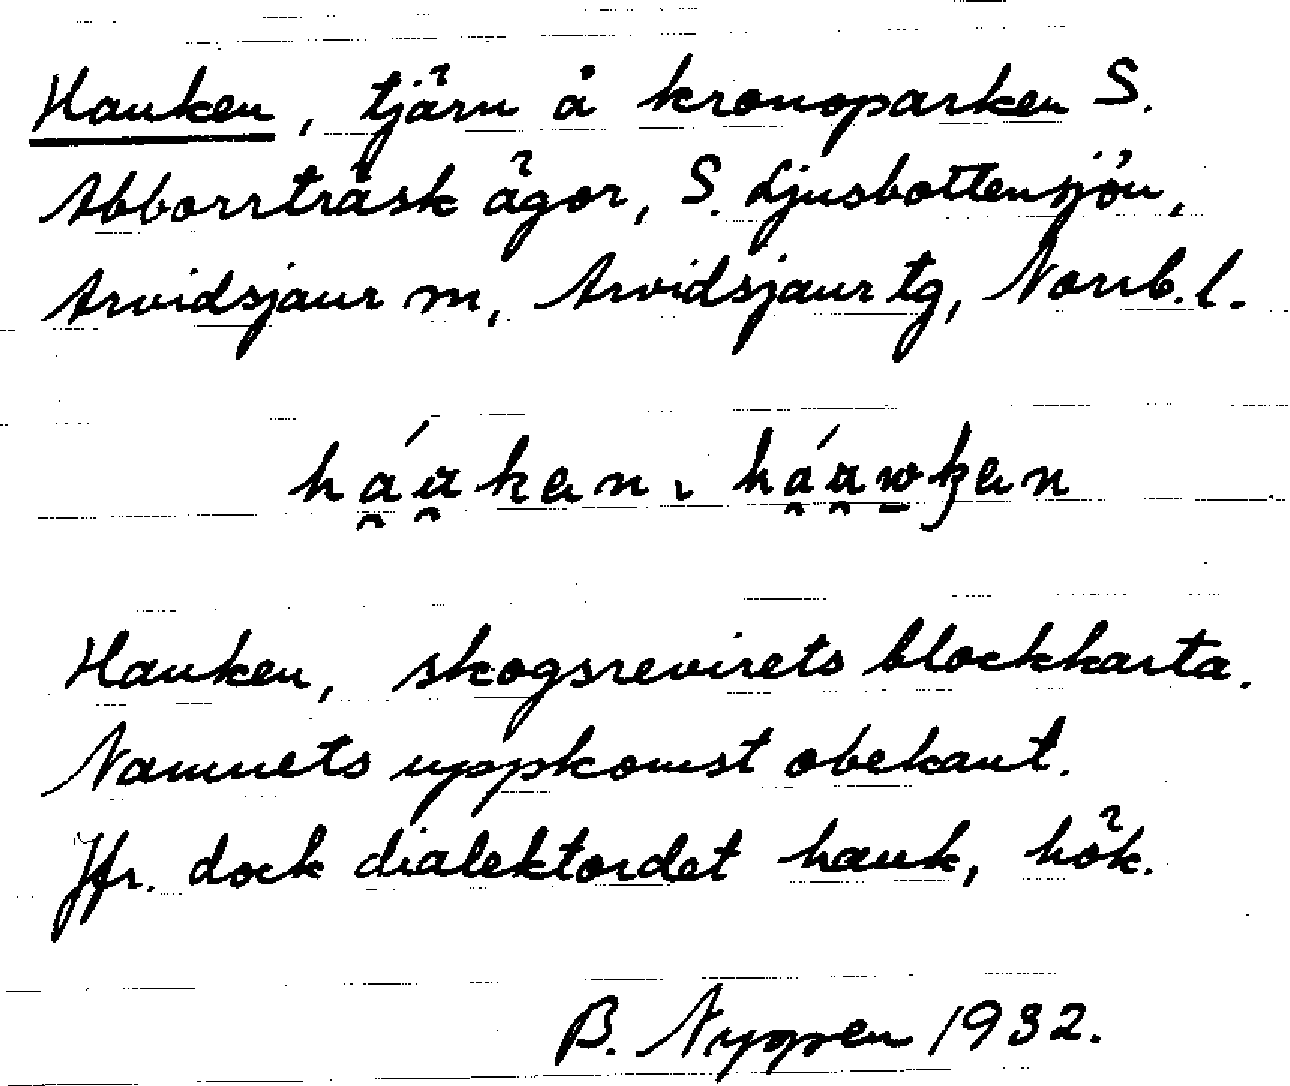 Hauken, tjärn å kronoparken S.
Abborrträsk ägor, S. Ljusbottensjön,
Arvidsjaur m, Arvidsjaur tg, Norrb. l.
Hauken, skogsrevirets blockkarta.
Namnets uppkomst obekant.
Jfr. dock dialektordet hauk, hök.
B. Nygren 1932.